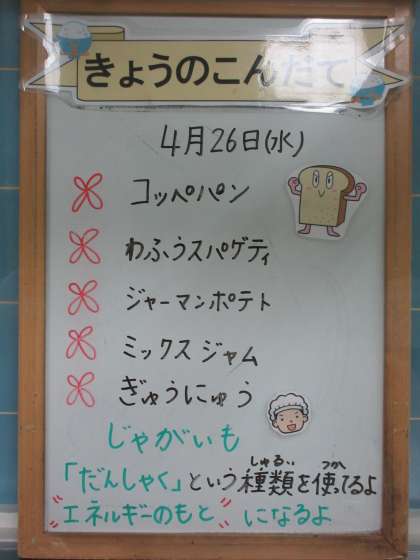 きょうのこんだて
4月26日(水)
コッペパン
わふうスパゲティ
ジャーマンポテト
ミックスジャム
ぎゅうにゅう
じゃがいも
しゅるい つか
「だんしゃく」という種類を使ってるよ
"エネルギーのもと"になるよ